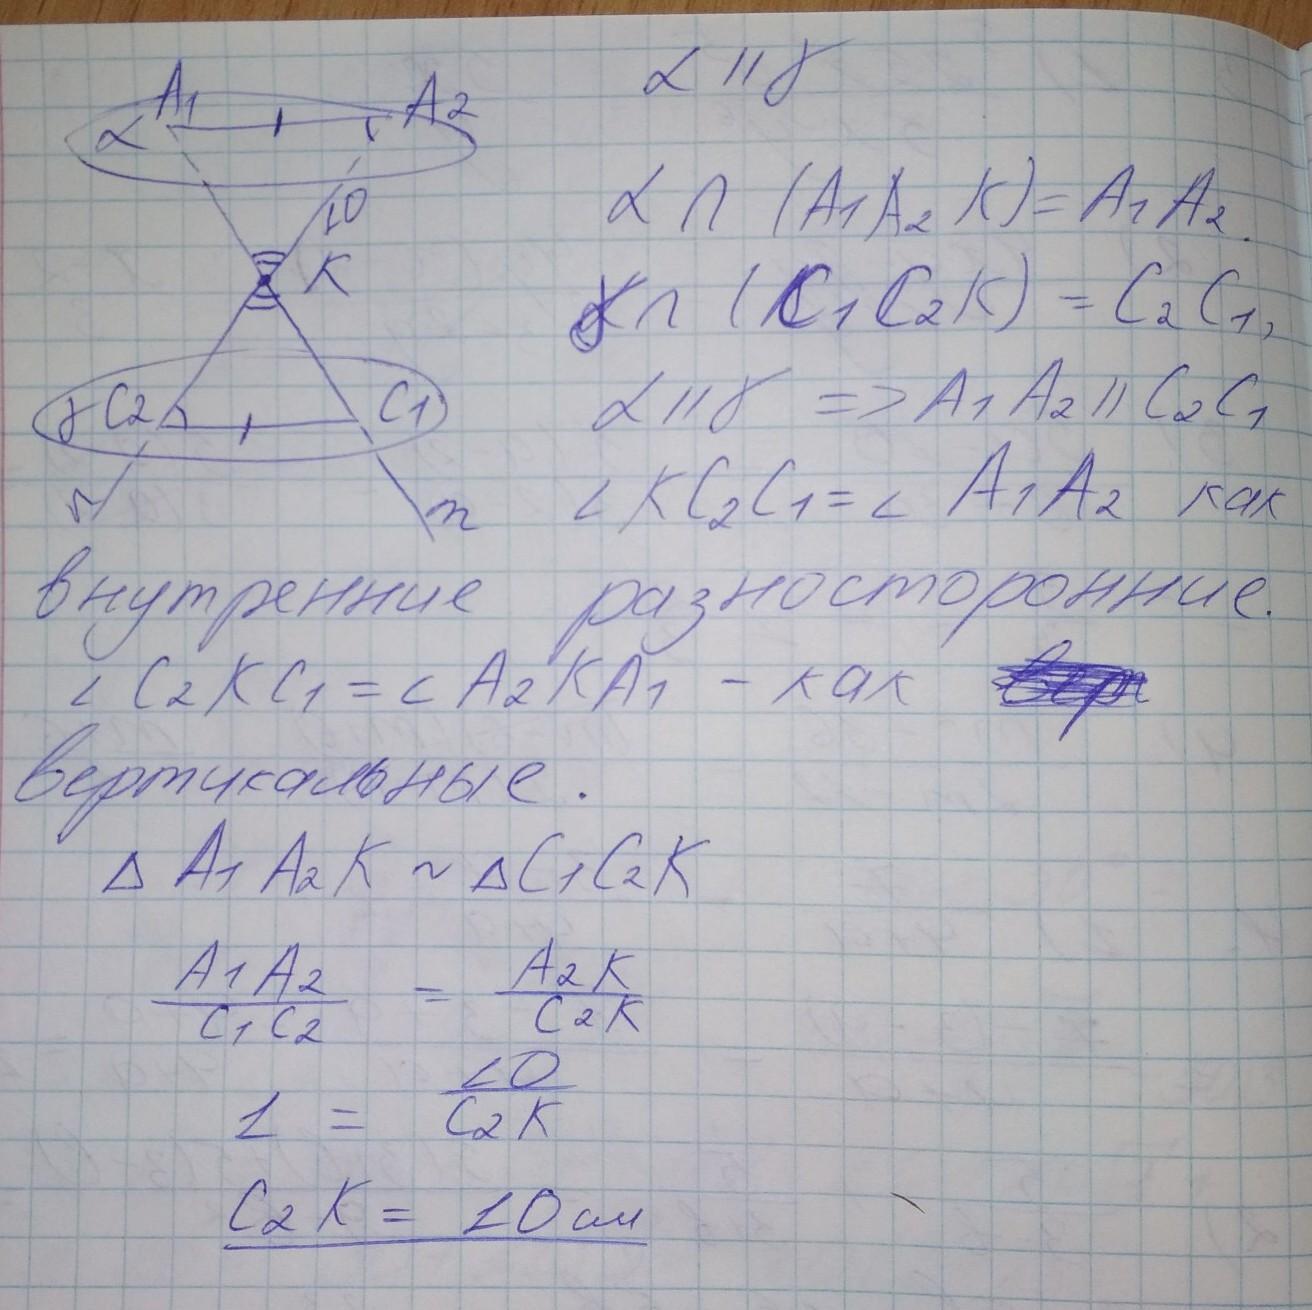 α || γ
A1 A2
α
10
K
γ C2 C1
n
α ∩ (A1A2K) = A1A2.
γ ∩ (C1C2K) = C2C1,
α || γ => A1A2 || C2C1
∠KC2C1 = ∠ A1A2 как
внутренние разносторонние.
∠C2KC1 = ∠A2KA1 - как
вертикальные.
Δ A1A2K ~ ΔC1C2K
A1A2 / C1C2 = A2K / C2K
1 = 10 / C2K
C2K = 10 см